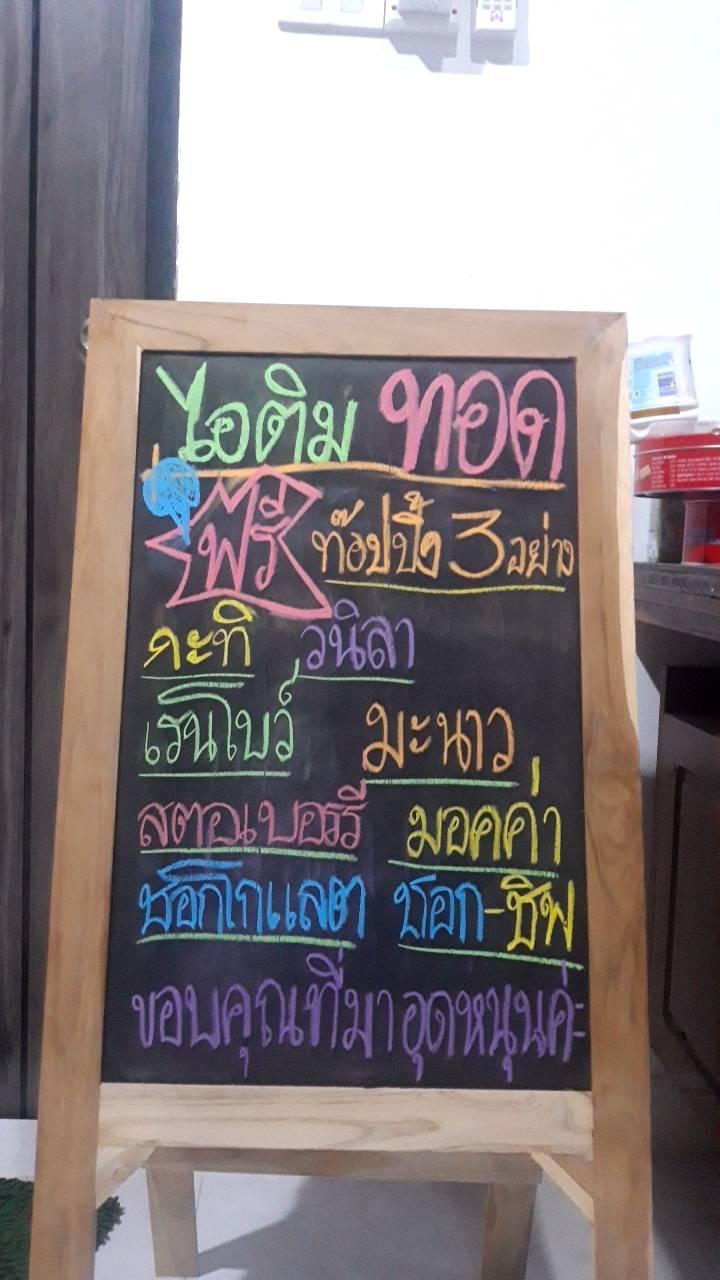 ไอติม ทอด
ฟรี ท๊อปปิ้ง 3 อย่าง
กะทิ วนิลา
เรนโบว์ มะนาว
สตอเบอรรี มอคค่า
ช๊อกโกแลต ชอก-ชิพ
ขอบคุณที่มาอุดหนุนค่ะ